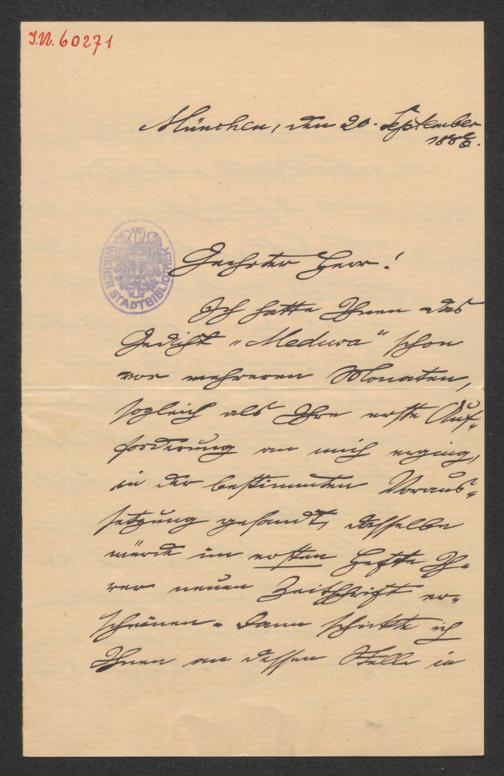 I.N. 60271
München, den 20. September
1888.
WIENER STADTBIBLIOTHEK
Geehrter Herr!
Ich hatte Ihnen das
Gedicht „Medusa“ schon
vor mehreren Monaten,
sogleich als Ihre erste Auf-
forderung an mich erging,
in der bestimmten Voraus-
setzung gesandt, dasselbe
würde im ersten Hefte Ih-
rer neuen Zeitschrift er-
scheinen. Dann schickte ich
Ihnen an dessen Stelle in